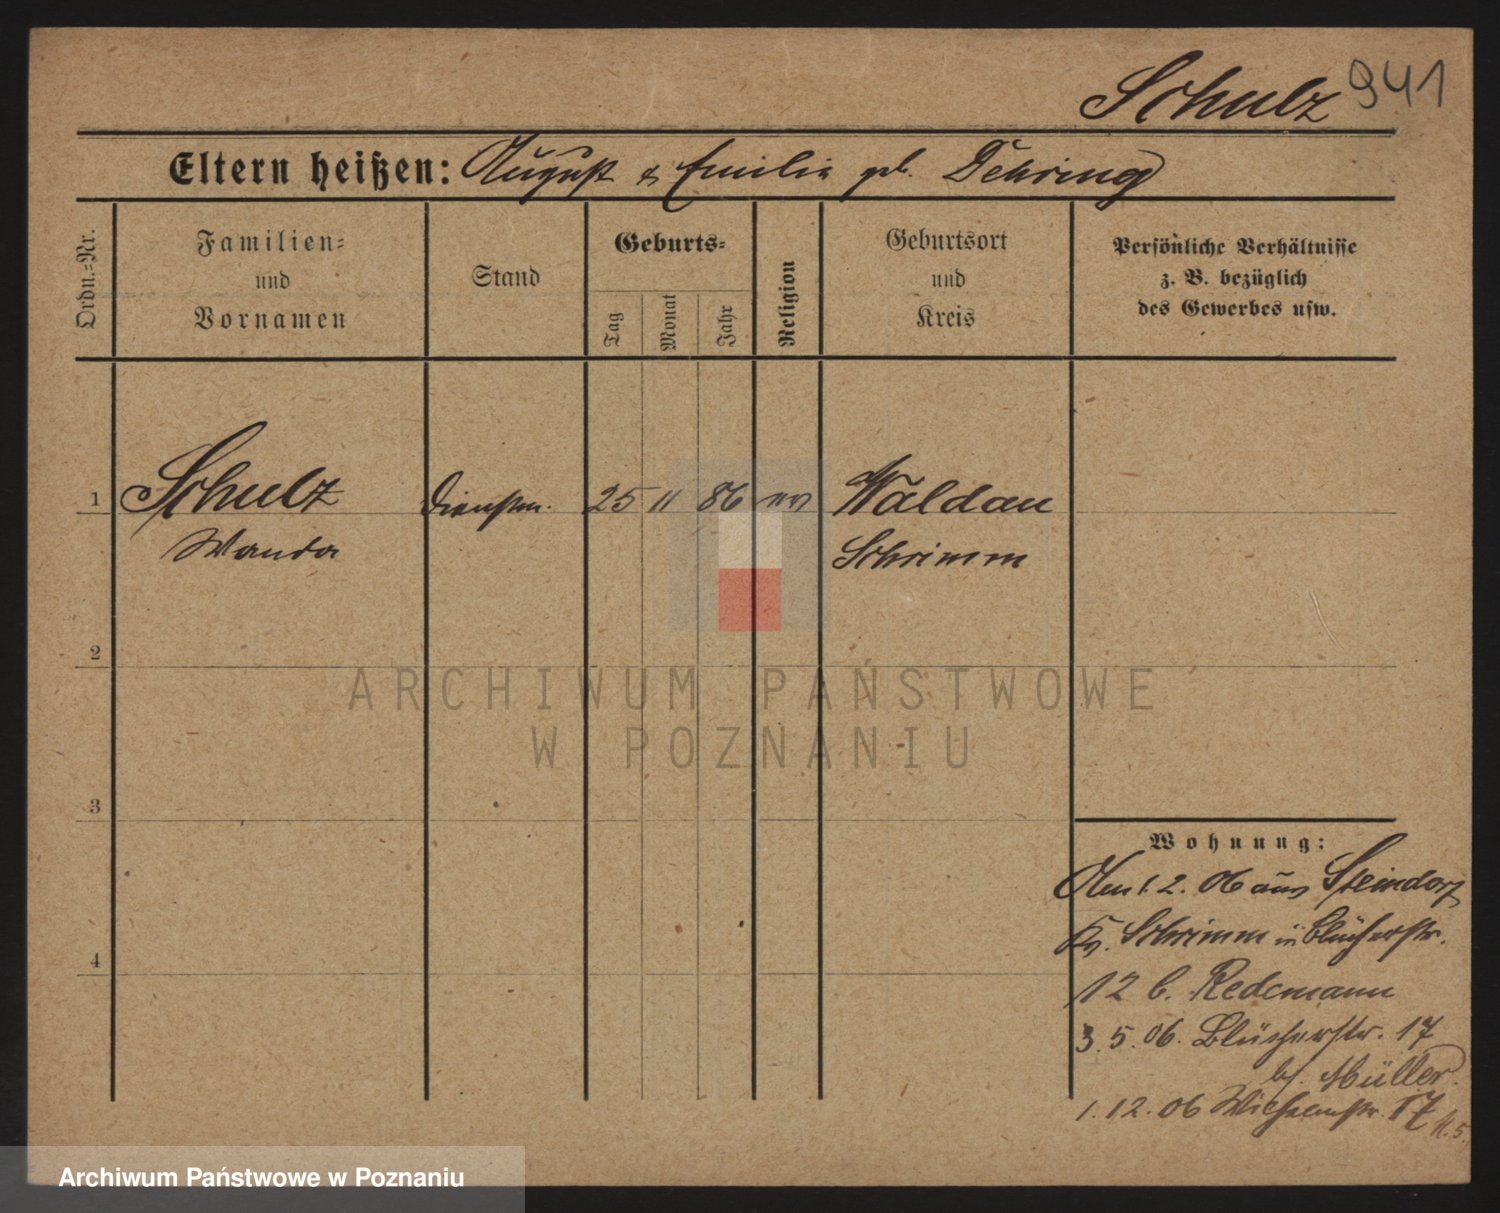 Schulz 941
Eltern heißen: August & Emilie geb. Dehring
Ordn.=Nr.
Familien=
und
Vornamen
Stand
Geburts=
Tag
Monat
Jahr
Religion
Geburtsort
und
Kreis
Persönliche Verhältnisse
z. B. bezüglich
des Gewerbes usw.
1 Schulz Dienstm. 25 11 86 ev Waldau
Wanda Schrimm
2
3
4
ARCHIWUM PAŃSTWOWE
W POZNANIU
Wohnung:
Am 1. 2. 06 aus Steindorf
Kr. Schrimm in Blücherstr.
12 b. Redemann
3. 5. 06. Blücherstr. 17
bei Müller.
1. 12. 06 17
Archiwum Państwowe w Poznaniu